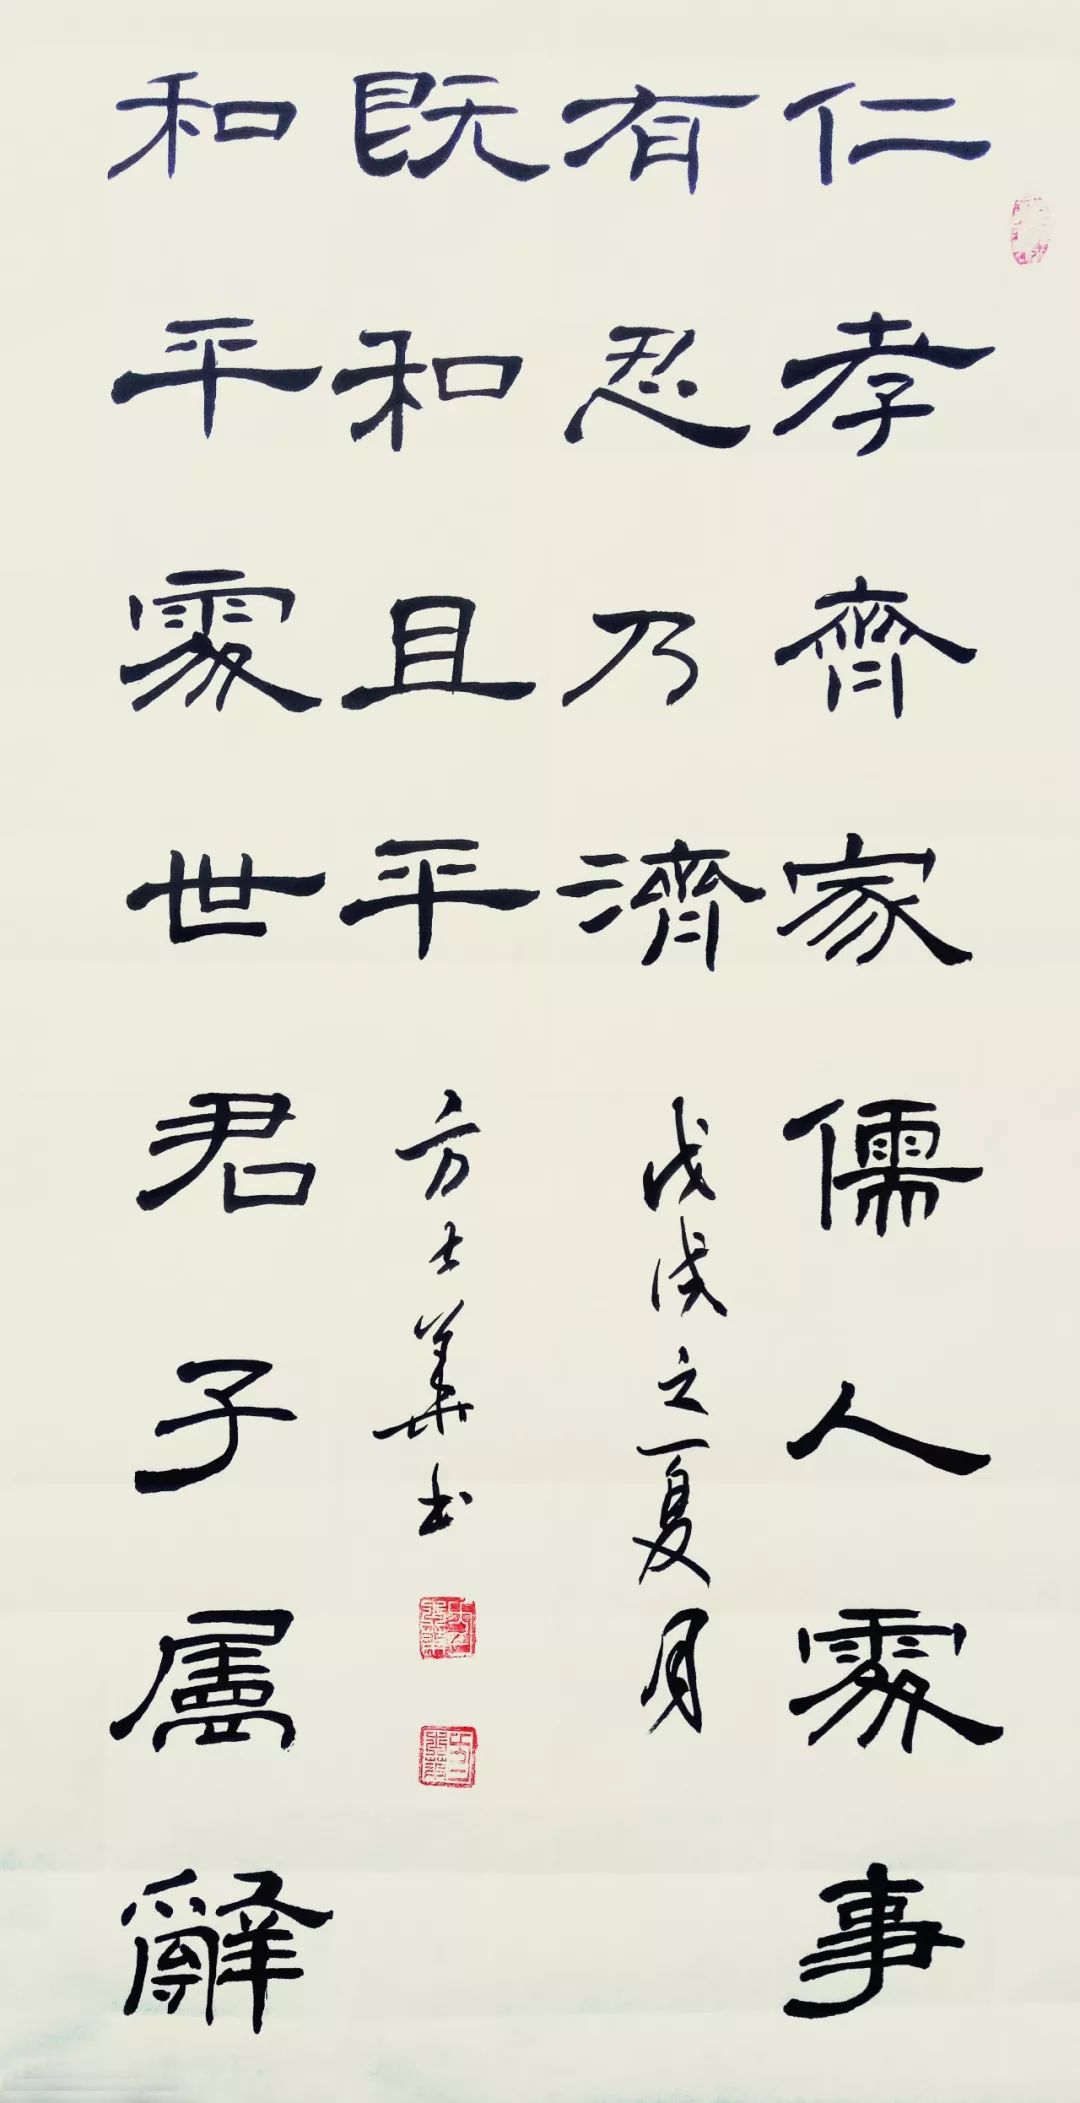 仁孝齊家儒人處事
有忍乃濟
既和且平
和平處世君子辭
戊戌之夏月
方士華书